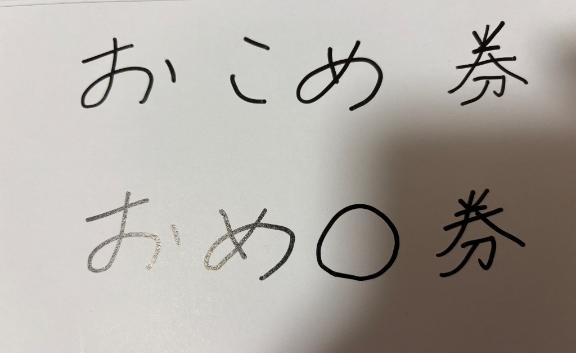 おこめ券
おめ○券